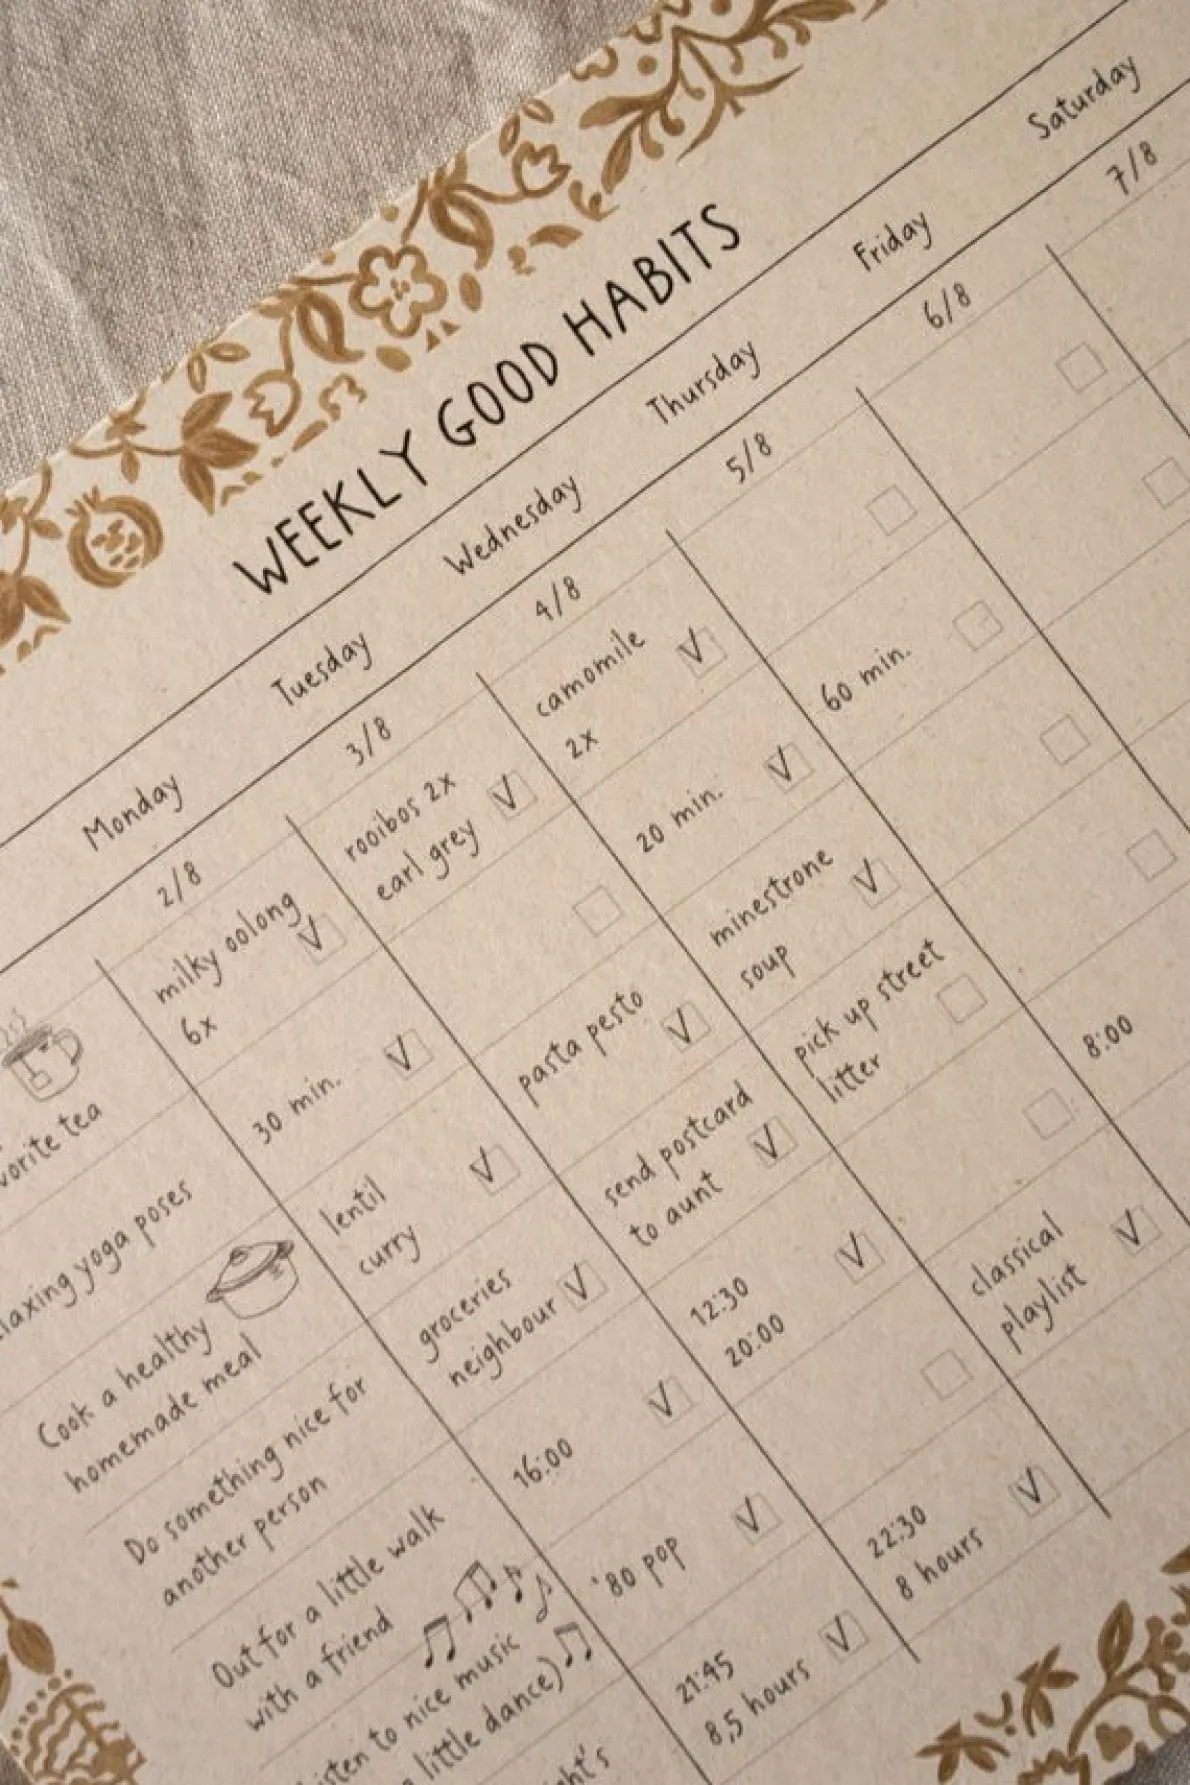 WEEKLY GOOD HABITS
Monday
Tuesday
Wednesday
Thursday
Friday
Saturday
2/8
3/8
4/8
5/8
6/8
7/8
vorite tea
milky oolong
6x
rooibos 2x
earl grey
camomile
2x
laxing yoga poses
30 min.
20 min.
60 min.
Cook a healthy
homemade meal
lentil
curry
pasta pesto
minestrone
soup
Do something nice for
another person
groceries
neighbour
send postcard
to aunt
pick up street
litter
Out for a little walk
with a friend
16:00
12:30
20:00
8:00
isten to nice music
little dance)
'80 pop
classical
playlist
ht's
21:45
8,5 hours
22:30
8 hours